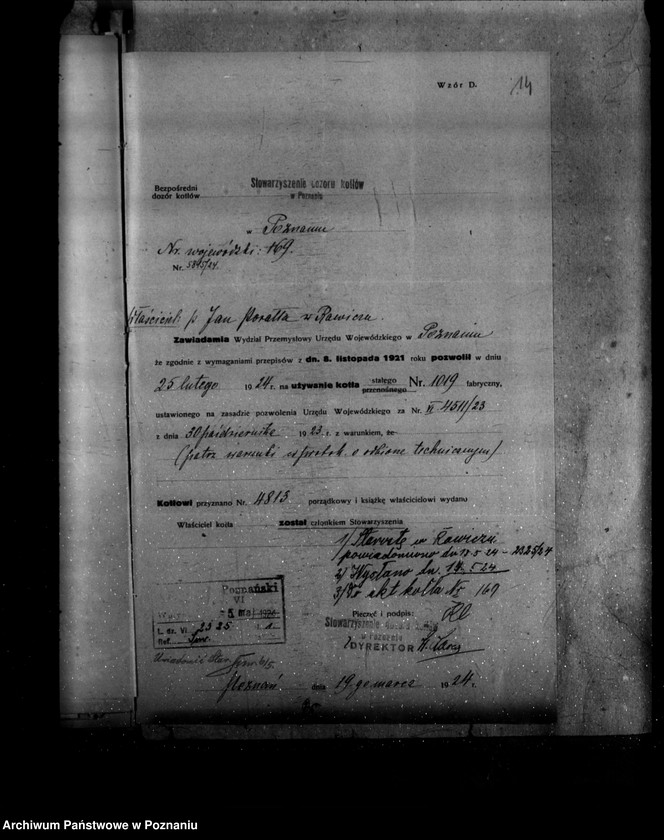 Wzór D.
14
Bezpośredni
dozór kotłów
Stowarzyszenie dozoru kotłów
w Poznaniu
w Poznaniu
Nr. wojewódzki: 169.
Nr. 5845/24.
Właściciel: p. Jan Poratta w Rawiczu.
Zawiadamia Wydział Przemysłowy Urzędu Wojewódzkiego w Poznaniu
że zgodnie z wymaganiami przepisów z dn. 8. listopada 1921 roku pozwolił w dniu
25 lutego 1924 r. na używanie kotła stałego przenośnego Nr. 1019 fabryczny,
ustawionego na zasadzie pozwolenia Urzędu Wojewódzkiego za Nr. VI 4511/23
z dnia 30 października 1923. r. z warunkiem, że
(patrz warunki w protok. o odbiorze technicznym)
Kotłowi przyznano Nr. 4813 porządkowy i książkę właścicielowi wydano
Właściciel kotła został członkiem Stowarzyszenia
1/ Starostę w Rawiczu
powiadomiono dn. 17.5 24 - 2325/24
2/ Wysłano dn. 17. 5 24
3/ Do akt kotła Nr 169
Poznański
VI
5 MAJ 1924
L. dz. VI. 2325
Ref.
Pieczęć i podpis:
Stowarzyszenie
w Poznaniu
DYREKTOR
Poznań dnia 19 go marca 1924 r.
Archiwum Państwowe w Poznaniu